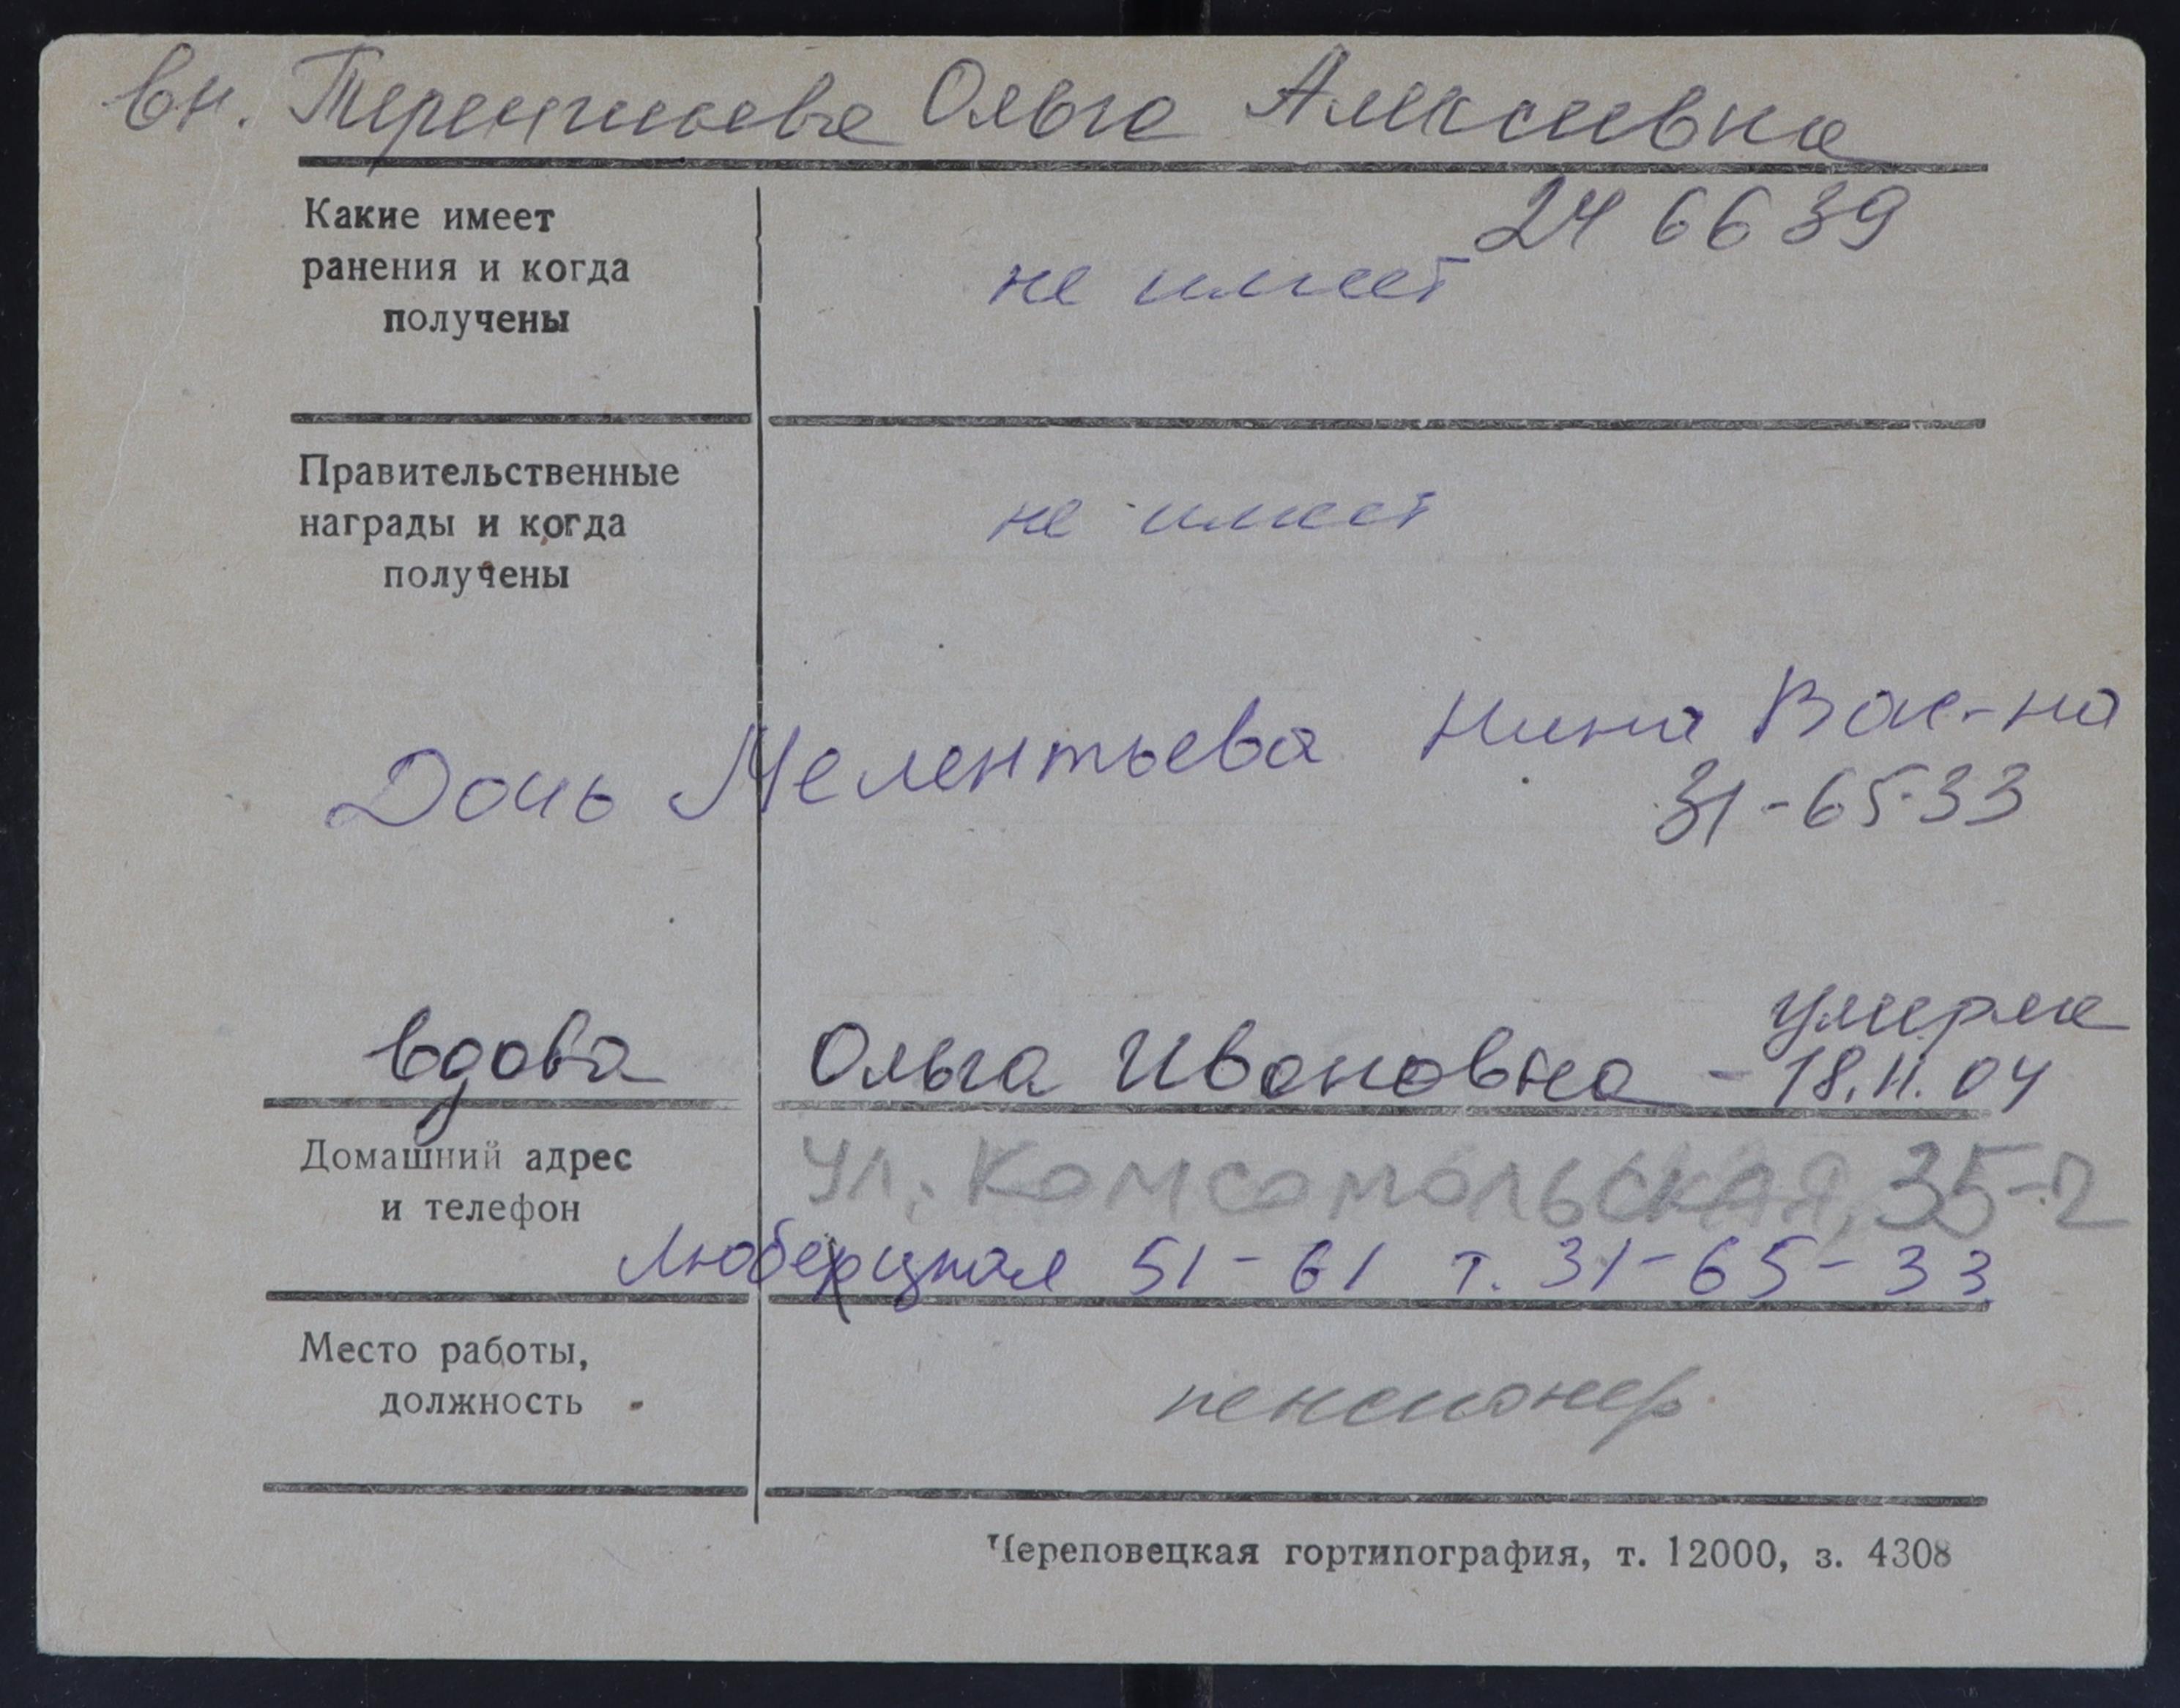 вн. Терентьева Ольга Алексеевна
24 66 39
Какие имеет
ранения и когда
получены
не имеет
Правительственные
награды и когда
получены
не имеет
Дочь Мелентьева Нина Вас-на
31-65-33
умерла
вдова Ольга Ивановна - 18.11.04
Домашний адрес
и телефон
ул. Комсомольская, 35-2
Люберцкая 51-61 т. 31-65-33
Место работы,
должность
пенсионер
Череповецкая гортипография, т. 12000, з. 4308